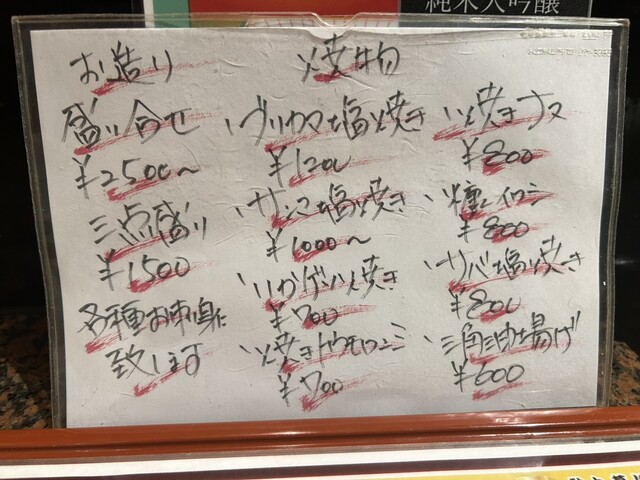 純米大吟醸
お造り
盛り合せ
¥2500〜
三点盛り
¥1500
各種お刺身に
致します
焼物
ブリカマ塩焼き
¥1200
サンマ塩焼き
¥1000〜
いかゲソ焼き
¥700
焼きトウモロコシ
¥700
焼きナス
¥800
糠イワシ
¥800
サバ塩焼き
¥800
三角油揚げ
¥600